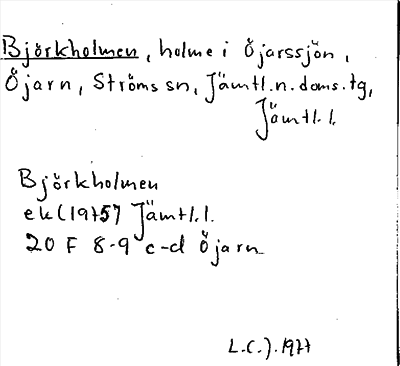 Björkholmen, holme i Öjarssjön,
Öjarn, Ströms sn, Jämtl.n.doms.tg,
Jämtl.l.
Björkholmen
ek (1975) Jämtl.l.
20 F 8-9 c-d Öjarn
L.C.J. 1977